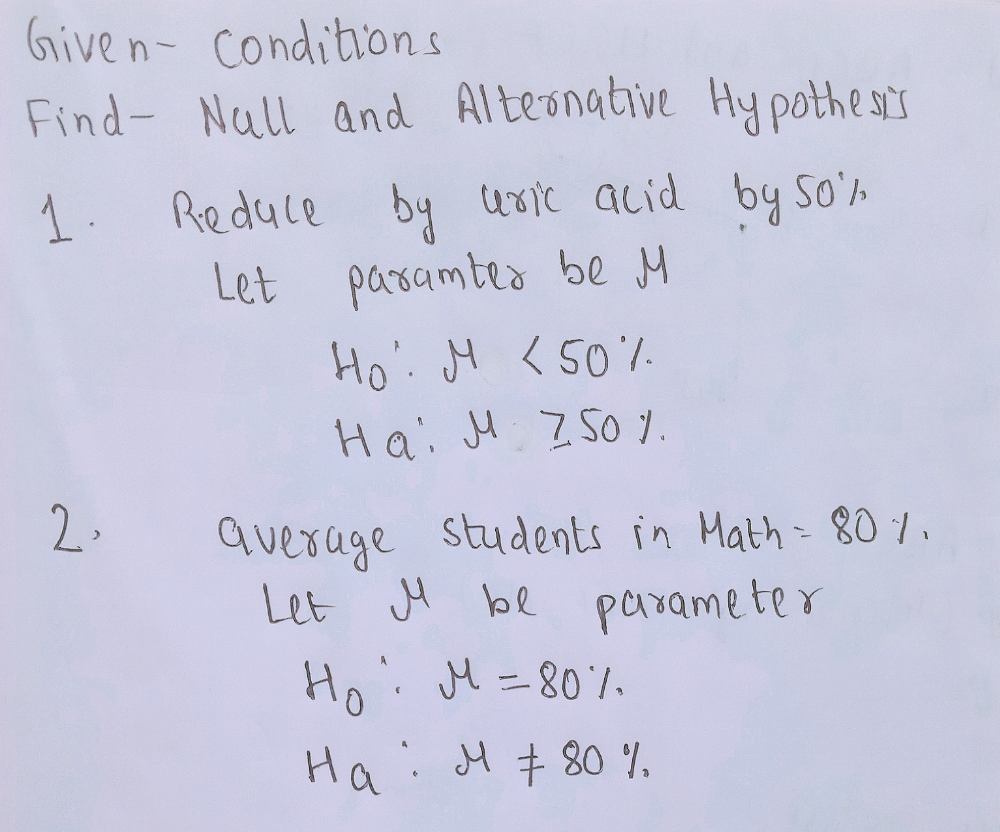 Given- Conditions
Find- Null and Alternative Hypothesis
1. Reduce by uric acid by 50%
Let paramter be μ
H0: μ < 50%.
Ha: μ ≥ 50%.
2. average students in Math = 80%.
Let μ be parameter
H0: μ = 80%.
Ha: μ ≠ 80%.